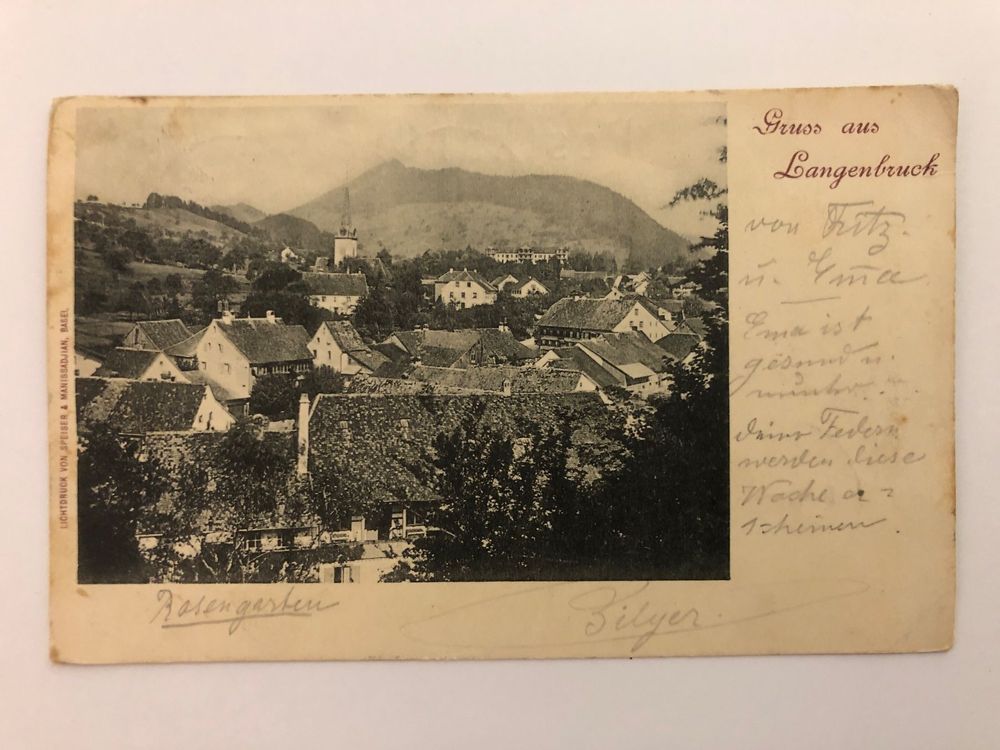 Gruss aus
Langenbruck
von Fritz.
u. Ema
Ema ist
gesund u.
munter.
deine Federn
werden diese
Woche er=
scheinen.
LICHTDRUCK VON SPEISER & MANISSADJIAN, BASEL
Rosengarten